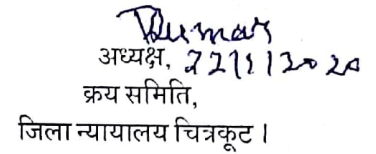 Kumar
अध्यक्ष, 22/1/2020
क्रय समिति,
जिला न्यायालय चित्रकूट ।